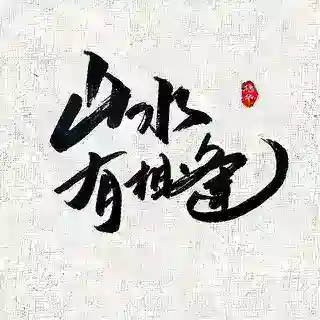 山水
有相逢